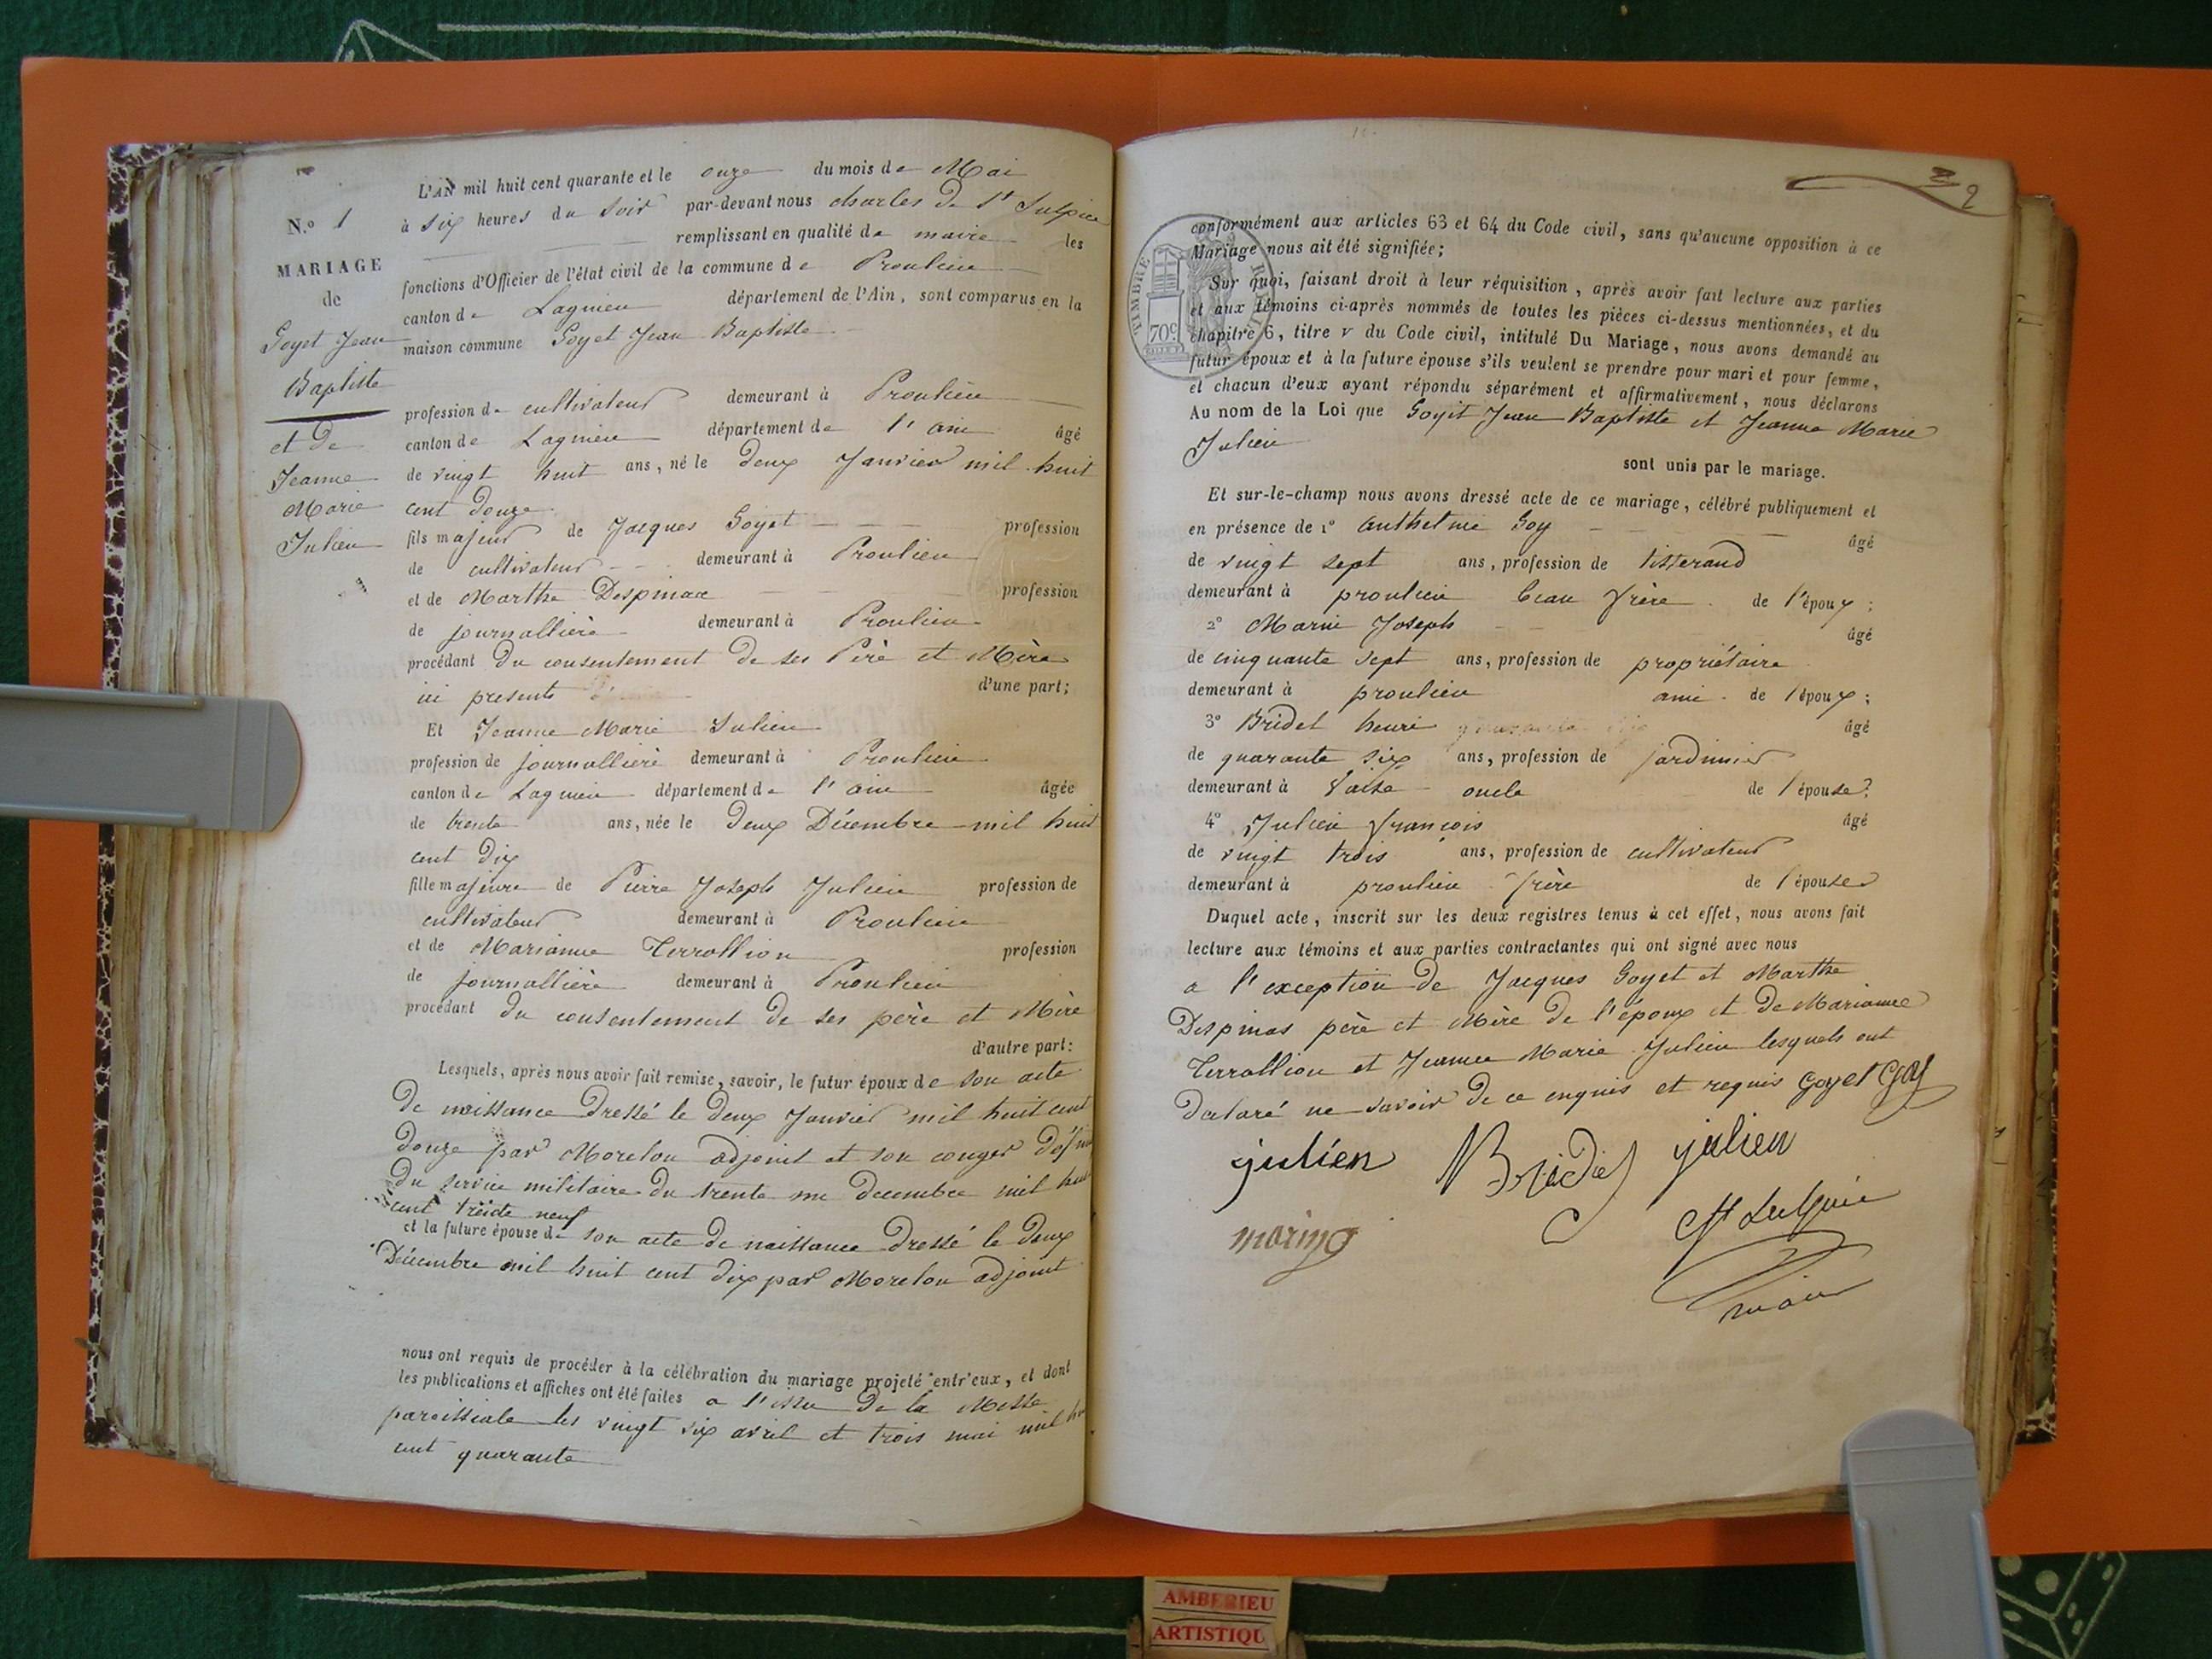 N.º 1
MARIAGE
de
Goyet Jean
Baptiste
et de
Jeanne
Marie
Julien
L'AN mil huit cent quarante et le onze du mois de Mai
à six heures du soir par-devant nous charles de St Sulpice
remplissant en qualité de maire les
fonctions d'Officier de l'état civil de la commune de Proulieu
canton de Lagnieu département de l'Ain, sont comparus en la
maison commune Goyet Jean Baptiste
profession de cultivateur demeurant à Proulieu
canton de Lagnieu département de l'ain âgé
de vingt huit ans, né le deux Janvier mil huit
cent douze
fils majeur de Jacques Goyet profession
de cultivateur demeurant à Proulieu
et de Marthe Despinax profession
de journallière demeurant à Proulieu
procédant du consentement de ses Père et Mère
ici presents d'une part;
Et Jeanne Marie Julien
profession de journallière demeurant à Proulieu
canton de Lagnieu département de l'ain âgée
de trente ans, née le deux Décembre mil huit
cent dix
fille majeure de Pierre Joseph Julien profession de
cultivateur demeurant à Proulieu
et de Marianne Terrollion profession
de journallière demeurant à Proulieu
procédant du consentement de ses père et Mère
d'autre part:
Lesquels, après nous avoir fait remise, savoir, le futur époux de son acte
de naissance dressé le deux Janvier mil huit cent
douze par Morelon adjoint et son conger
du service militaire du trente une decembre mil huit
cent trente neuf
et la future épouse de son acte de naissance dressé le deux
Décembre mil huit cent dix par Morelon adjoint
nous ont requis de procéder à la célébration du mariage projeté entr'eux, et dont
les publications et affiches ont été faites a l'issu de la Messe
paroissiale les vingt six avril et trois mai mil
cent quarante
2
TIMBRE ROYAL
70c
conformément aux articles 63 et 64 du Code civil, sans qu'aucune opposition à ce
Mariage nous ait été signifiée;
Sur quoi, faisant droit à leur réquisition, après avoir fait lecture aux parties
et aux témoins ci-après nommés de toutes les pièces ci-dessus mentionnées, et du
chapitre 6, titre V du Code civil, intitulé Du Mariage, nous avons demandé au
futur époux et à la future épouse s'ils veulent se prendre pour mari et pour femme,
et chacun d'eux ayant répondu séparément et affirmativement, nous déclarons
Au nom de la Loi que Goyet Jean Baptiste et Jeanne Marie
Julien
sont unis par le mariage.
Et sur-le-champ nous avons dressé acte de ce mariage, célébré publiquement et
en présence de 1º Anthelme Goy âgé
de vingt sept ans, profession de tisserand
demeurant à proulieu beau frère de l'époux;
2º Marin Joseph âgé
de cinquante sept ans, profession de propriétaire
demeurant à proulieu ami de l'époux;
3º Bridet henri âgé
de quarante six ans, profession de jardinier
demeurant à Vaise oncle de l'épouse;
4º Julien françois âgé
de vingt trois ans, profession de cultivateur
demeurant à proulieu frère de l'épouse
Duquel acte, inscrit sur les deux registres tenus à cet effet, nous avons fait
lecture aux témoins et aux parties contractantes qui ont signé avec nous
a l'exception de Jacques Goyet et Marthe
Despinas père et Mère de l'époux et de Marianne
Terrollion et Jeanne Marie Julien lesquels ont
declaré ne savoir de ce enquis et requis Goyet Goy
julien Bridet julien
St Sulpice
marin
maire
AMBERIEU
ARTISTIQU